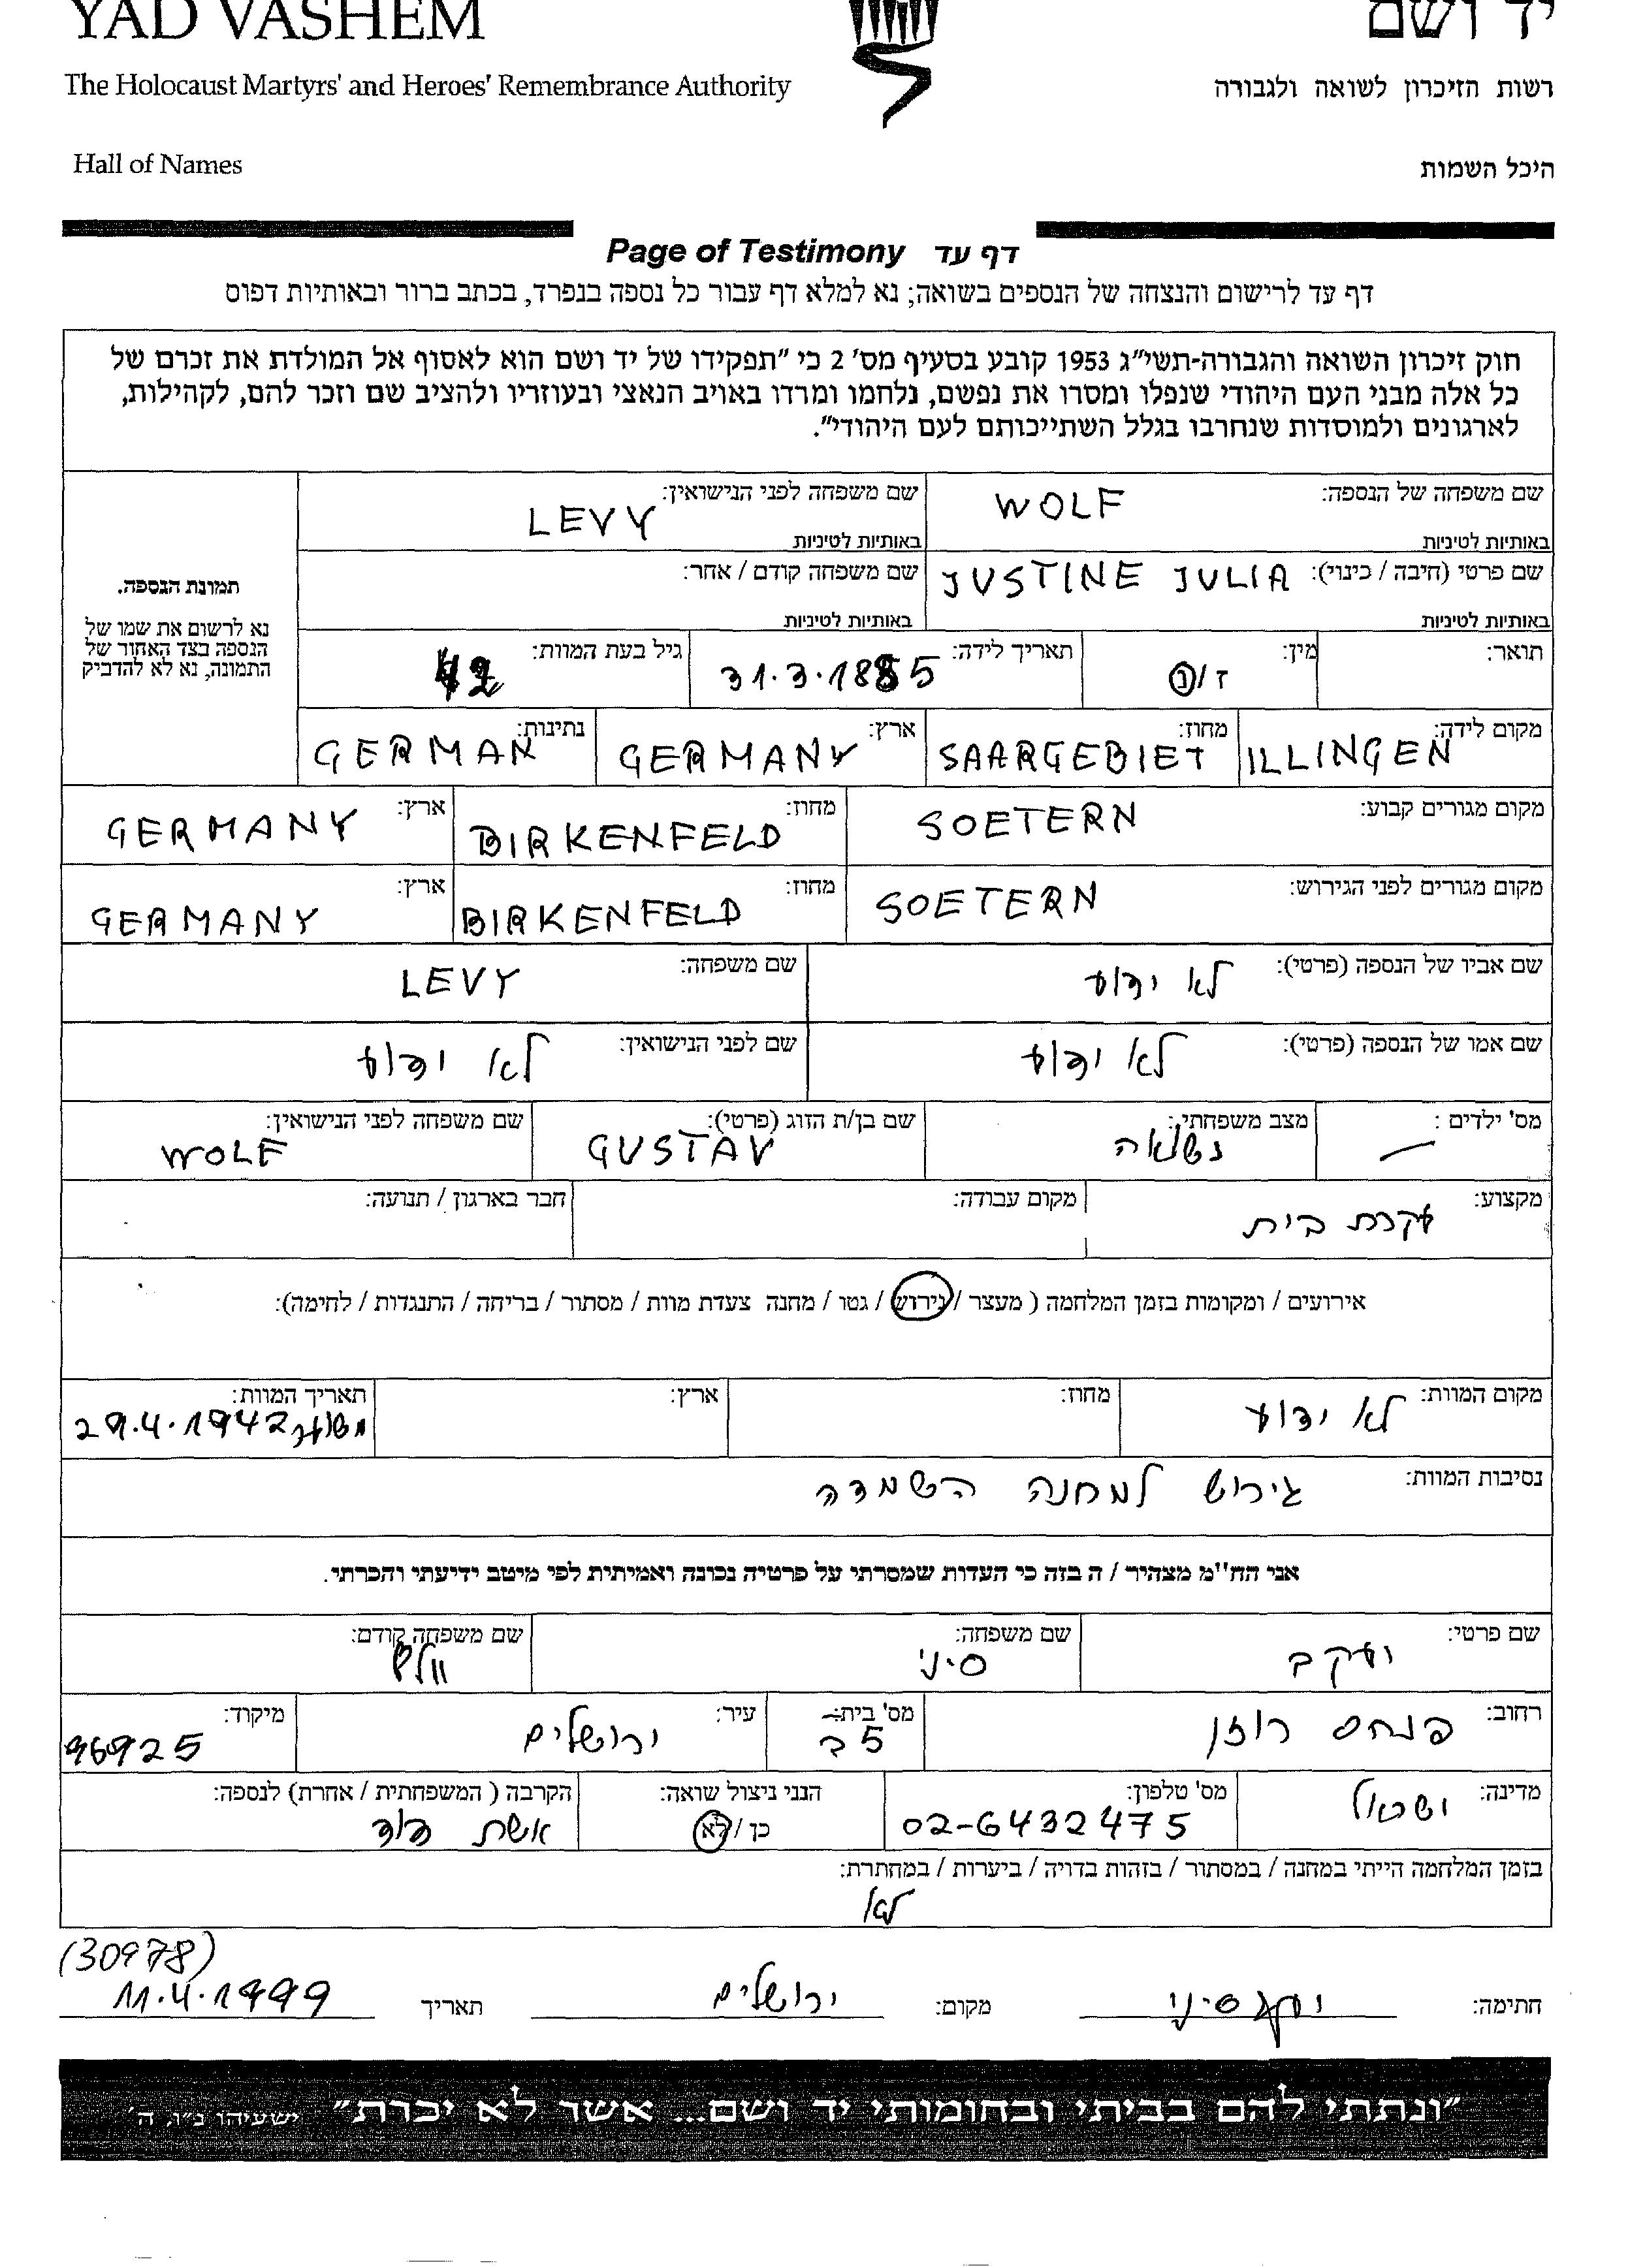 YAD VASHEM יד ושם
The Holocaust Martyrs' and Heroes' Remembrance Authority רשות הזיכרון לשואה ולגבורה
Hall of Names היכל השמות
Page of Testimony דף עד
דף עד לרישום והנצחה של הנספים בשואה; נא למלא דף עבור כל נספה בנפרד, בכתב ברור ובאותיות דפוס
חוק זיכרון השואה והגבורה-תשי"ג 1953 קובע בסעיף מס' 2 כי "תפקידו של יד ושם הוא לאסוף אל המולדת את זכרם של
כל אלה מבני העם היהודי שנפלו ומסרו את נפשם, נלחמו ומרדו באויב הנאצי ובעוזריו ולהציב שם וזכר להם, לקהילות,
לארגונים ולמוסדות שנחרבו בגלל השתייכותם לעם היהודי".
שם משפחה של הנספה: WOLF שם משפחה לפני הנישואין: LEVY
באותיות לטיניות באותיות לטיניות
שם פרטי (חיבה / כינוי): JUSTINE JULIA שם משפחה קודם / אחר:
באותיות לטיניות באותיות לטיניות
תמונת הנספה.
נא לרשום את שמו של
הנספה בצד האחור של
התמונה, נא לא להדביק
תואר: מין: ז/נ תאריך לידה: 31.3.1885 גיל בעת המוות:
מקום לידה: ILLINGEN מחוז: SAARGEBIET ארץ: GERMANY נתינות: GERMAN
מקום מגורים קבוע: SOETERN מחוז: BIRKENFELD ארץ: GERMANY
מקום מגורים לפני הגירוש: SOETERN מחוז: BIRKENFELD ארץ: GERMANY
שם אביו של הנספה (פרטי): לא ידוע שם משפחה: LEVY
שם אמו של הנספה (פרטי): לא ידוע שם לפני הנישואין: לא ידוע
מס' ילדים : — מצב משפחתי: נשואה שם בן/ת הזוג (פרטי): GUSTAV שם משפחה לפני הנישואין: WOLF
מקצוע: עקרת בית מקום עבודה: חבר בארגון / תנועה:
אירועים / ומקומות בזמן המלחמה ( מעצר / גירוש / גטו / מחנה צעדת מוות / מסתור / בריחה / התנגדות / לחימה):
מקום המוות: לא ידוע מחוז: ארץ: תאריך המוות: משוער 29.4.1942
נסיבות המוות: גירוש למחנה השמדה
אני הח"מ מצהיר / ה בזה כי העדות שמסרתי על פרטיה נכונה ואמיתית לפי מיטב ידיעתי והכרתי.
שם פרטי: יעקב שם משפחה: סיני שם משפחה קודם: וולף
רחוב: פנחס רוזן מס' בית: 5ב עיר: ירושלים מיקוד: 96925
מדינה: ישראל מס' טלפון: 02-6432475 הנני ניצול שואה: כן / לא הקרבה ( המשפחתית / אחרת) לנספה: אשת דוד
בזמן המלחמה הייתי במחנה / במסתור / בזהות בדויה / ביערות / במחתרת:
לא
(30978)
חתימה: יעקב סיני מקום: ירושלים תאריך 11.4.1999
"ונתתי להם בביתי ובחומותי יד ושם... אשר לא יכרת" ישעיהו נ"ו, ה'